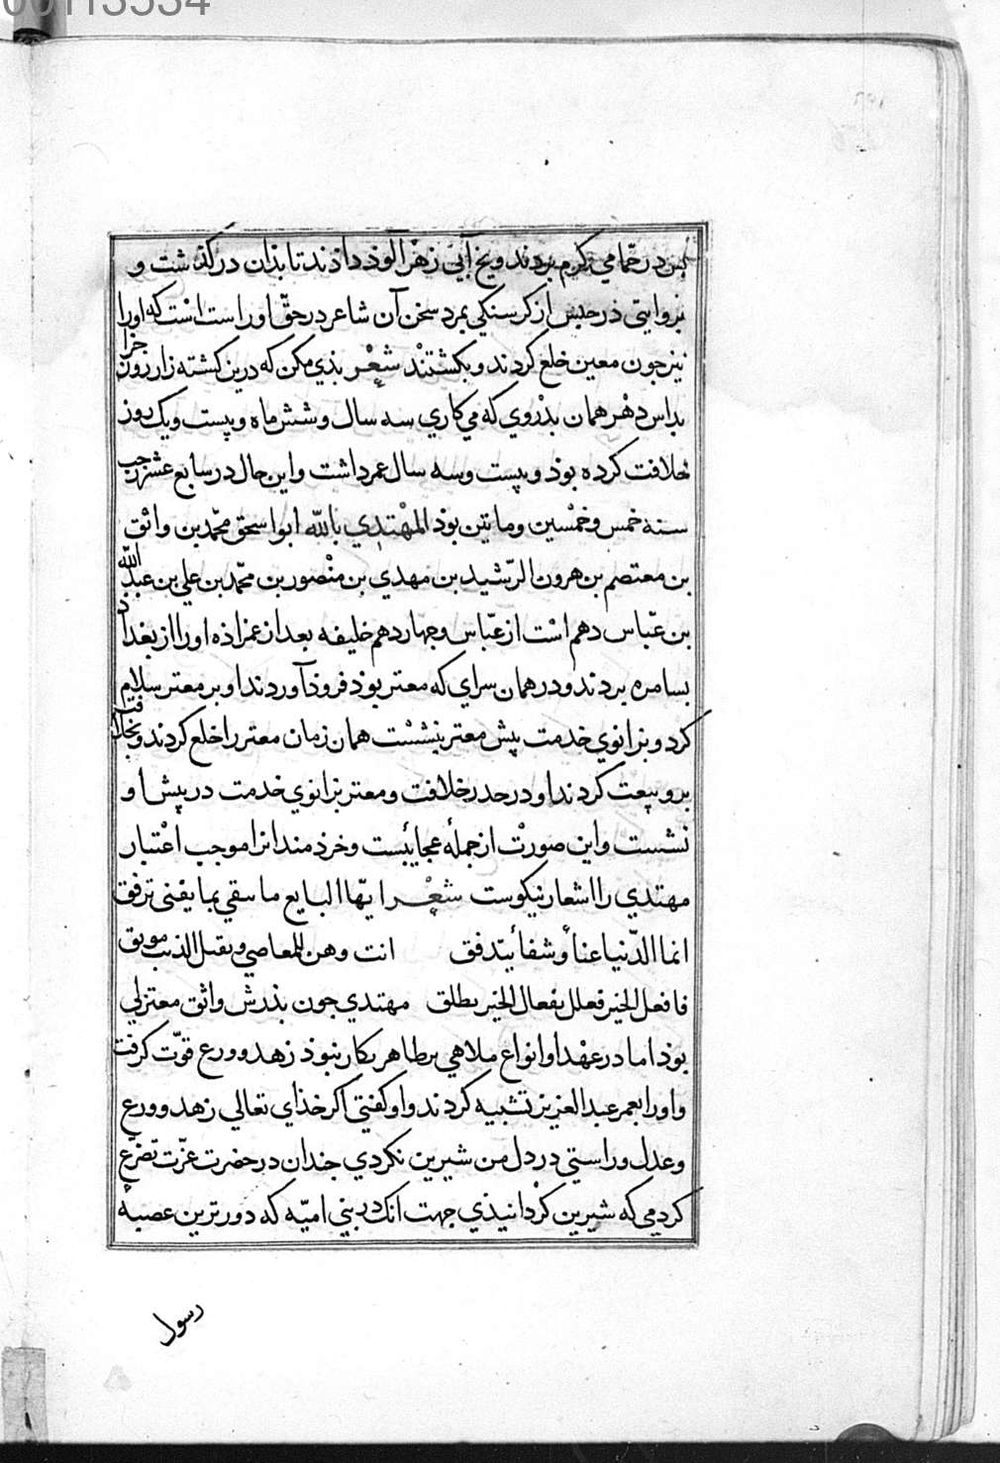 00113534
پس در حمّامی گرم بردند و یخ آبی زهر آلوذ داذند تا بذان در کذشت و
بروایتی در حبس از کرسنکی بمرد سخن آن شاعر در حقّ او راست است که او را
نیز جون معین خلع کردند و بکشتند شعر بذی مکن که درین کشته زار زون جزا
بداس دهر همان بذروی که می کاری سه سال و شش ماه و بیست و یک روز
خلافت کرده بوذ و بیست و سه سال عمر داشت و این حال در سابع عشر رجب
سنه خمس و خمسین و مایتین بوذ المهتدی بالله ابو اسحق محمّد بن واثق
بن معتصم بن هرون الرّشید بن مهدی بن منصور بن محمّد بن علی بن عبد الله
بن عبّاس دهم است از عبّاس و جهاردهم خلیفه بعد از عمزاذه او را از بغداد
بسامره بردند و در همان سرای که معتز بوذ فروذ آوردند او بر معتز سلام
کرد و بزانوی خدمت پیش معتز بنشست همان زمان معتز را خلع کردند و بخلافت
برو بیعت کردند او در صدر خلافت و معتز بزانوی خدمت در پیش او
نشست و این صورت از جملهٔ عجایبست و خرذمندانرا موجب اعتبار
مهتدی را اشعار نیکوست شعر ایّها البایع ما یبقی بما یفنی ترفق
انما الدّنیا عناً و شفا یتدفق انت وهن للمعاصی و بقبل الذنب موبق
فافعل الخیر فعلل بفعال الخیر یطلق مهتدی جون بذرش واثق معتزلی
بوذ اما در عهد او انواع ملاهی بر ظاهر بکار نبوذ زهد و ورع قوّت کرفت
و او را بعمر عبد العزیز تشبیه کردند و او کفتی اکر خذای تعالی زهد و ورع
و عدل و راستی در دل من شیرین نکردی جندان در حضرت عزّت تضرّع
کردمی که شیرین کردانیذی جهت انک در بنی امیّه که دورترین عصبهٔ
رسول